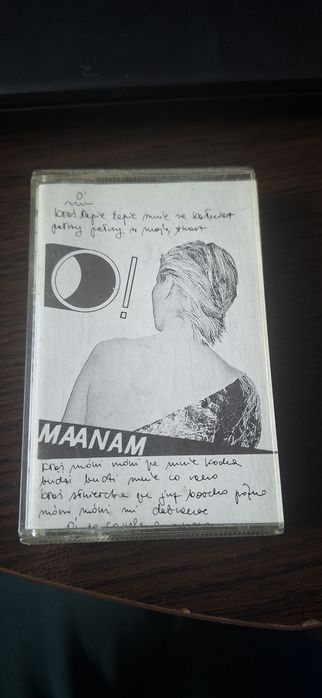 Ktoś łapie łapie mnie za kołnierz
patrzy patrzy w moją twarz
O!
MAANAM
Ktoś mówi mówi że mnie kocha
budzi budzi mnie co rano
ktoś stwierdza że już bardzo późno
mówi mówi mi dobranoc